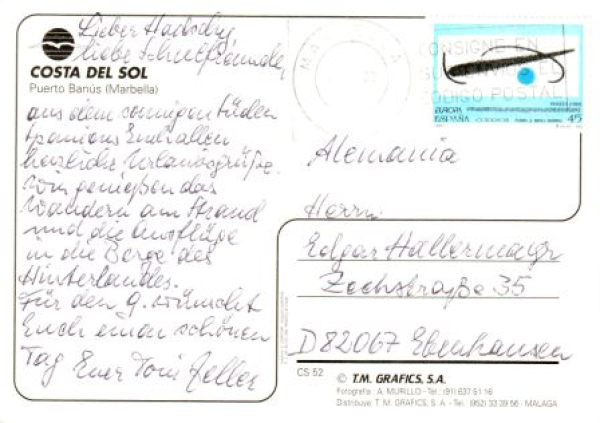 Lieber Hadschy
liebe Schulfreunde,
COSTA DEL SOL
Puerto Banús (Marbella)
aus dem sonnigen Süden
Spaniens Euch allen
herzliche Urlaubsgrüße.
Wir genießen das
Wandern am Strand
und die Ausflüge
in die Berge des
Hinterlandes.
Für den 9. wünscht
Euch einen schönen
Tag Euer Toni Zeller
CONSIGNE EN
EL
CODIGO POSTAL
EUROPA
ESPAÑA
CORREOS
45
Alemania
Herrn
Edgar Hallermayr
Zechstraße 35
D 82067 Ebenhausen
CS 52
© T.M. GRAFICS, S.A.
Fotografía: A. MURILLO - Tel.: (91) 637 51 16
Distribuye: T. M. GRAFICS, S. A. - Tel.: (952) 33 39 56 - MALAGA